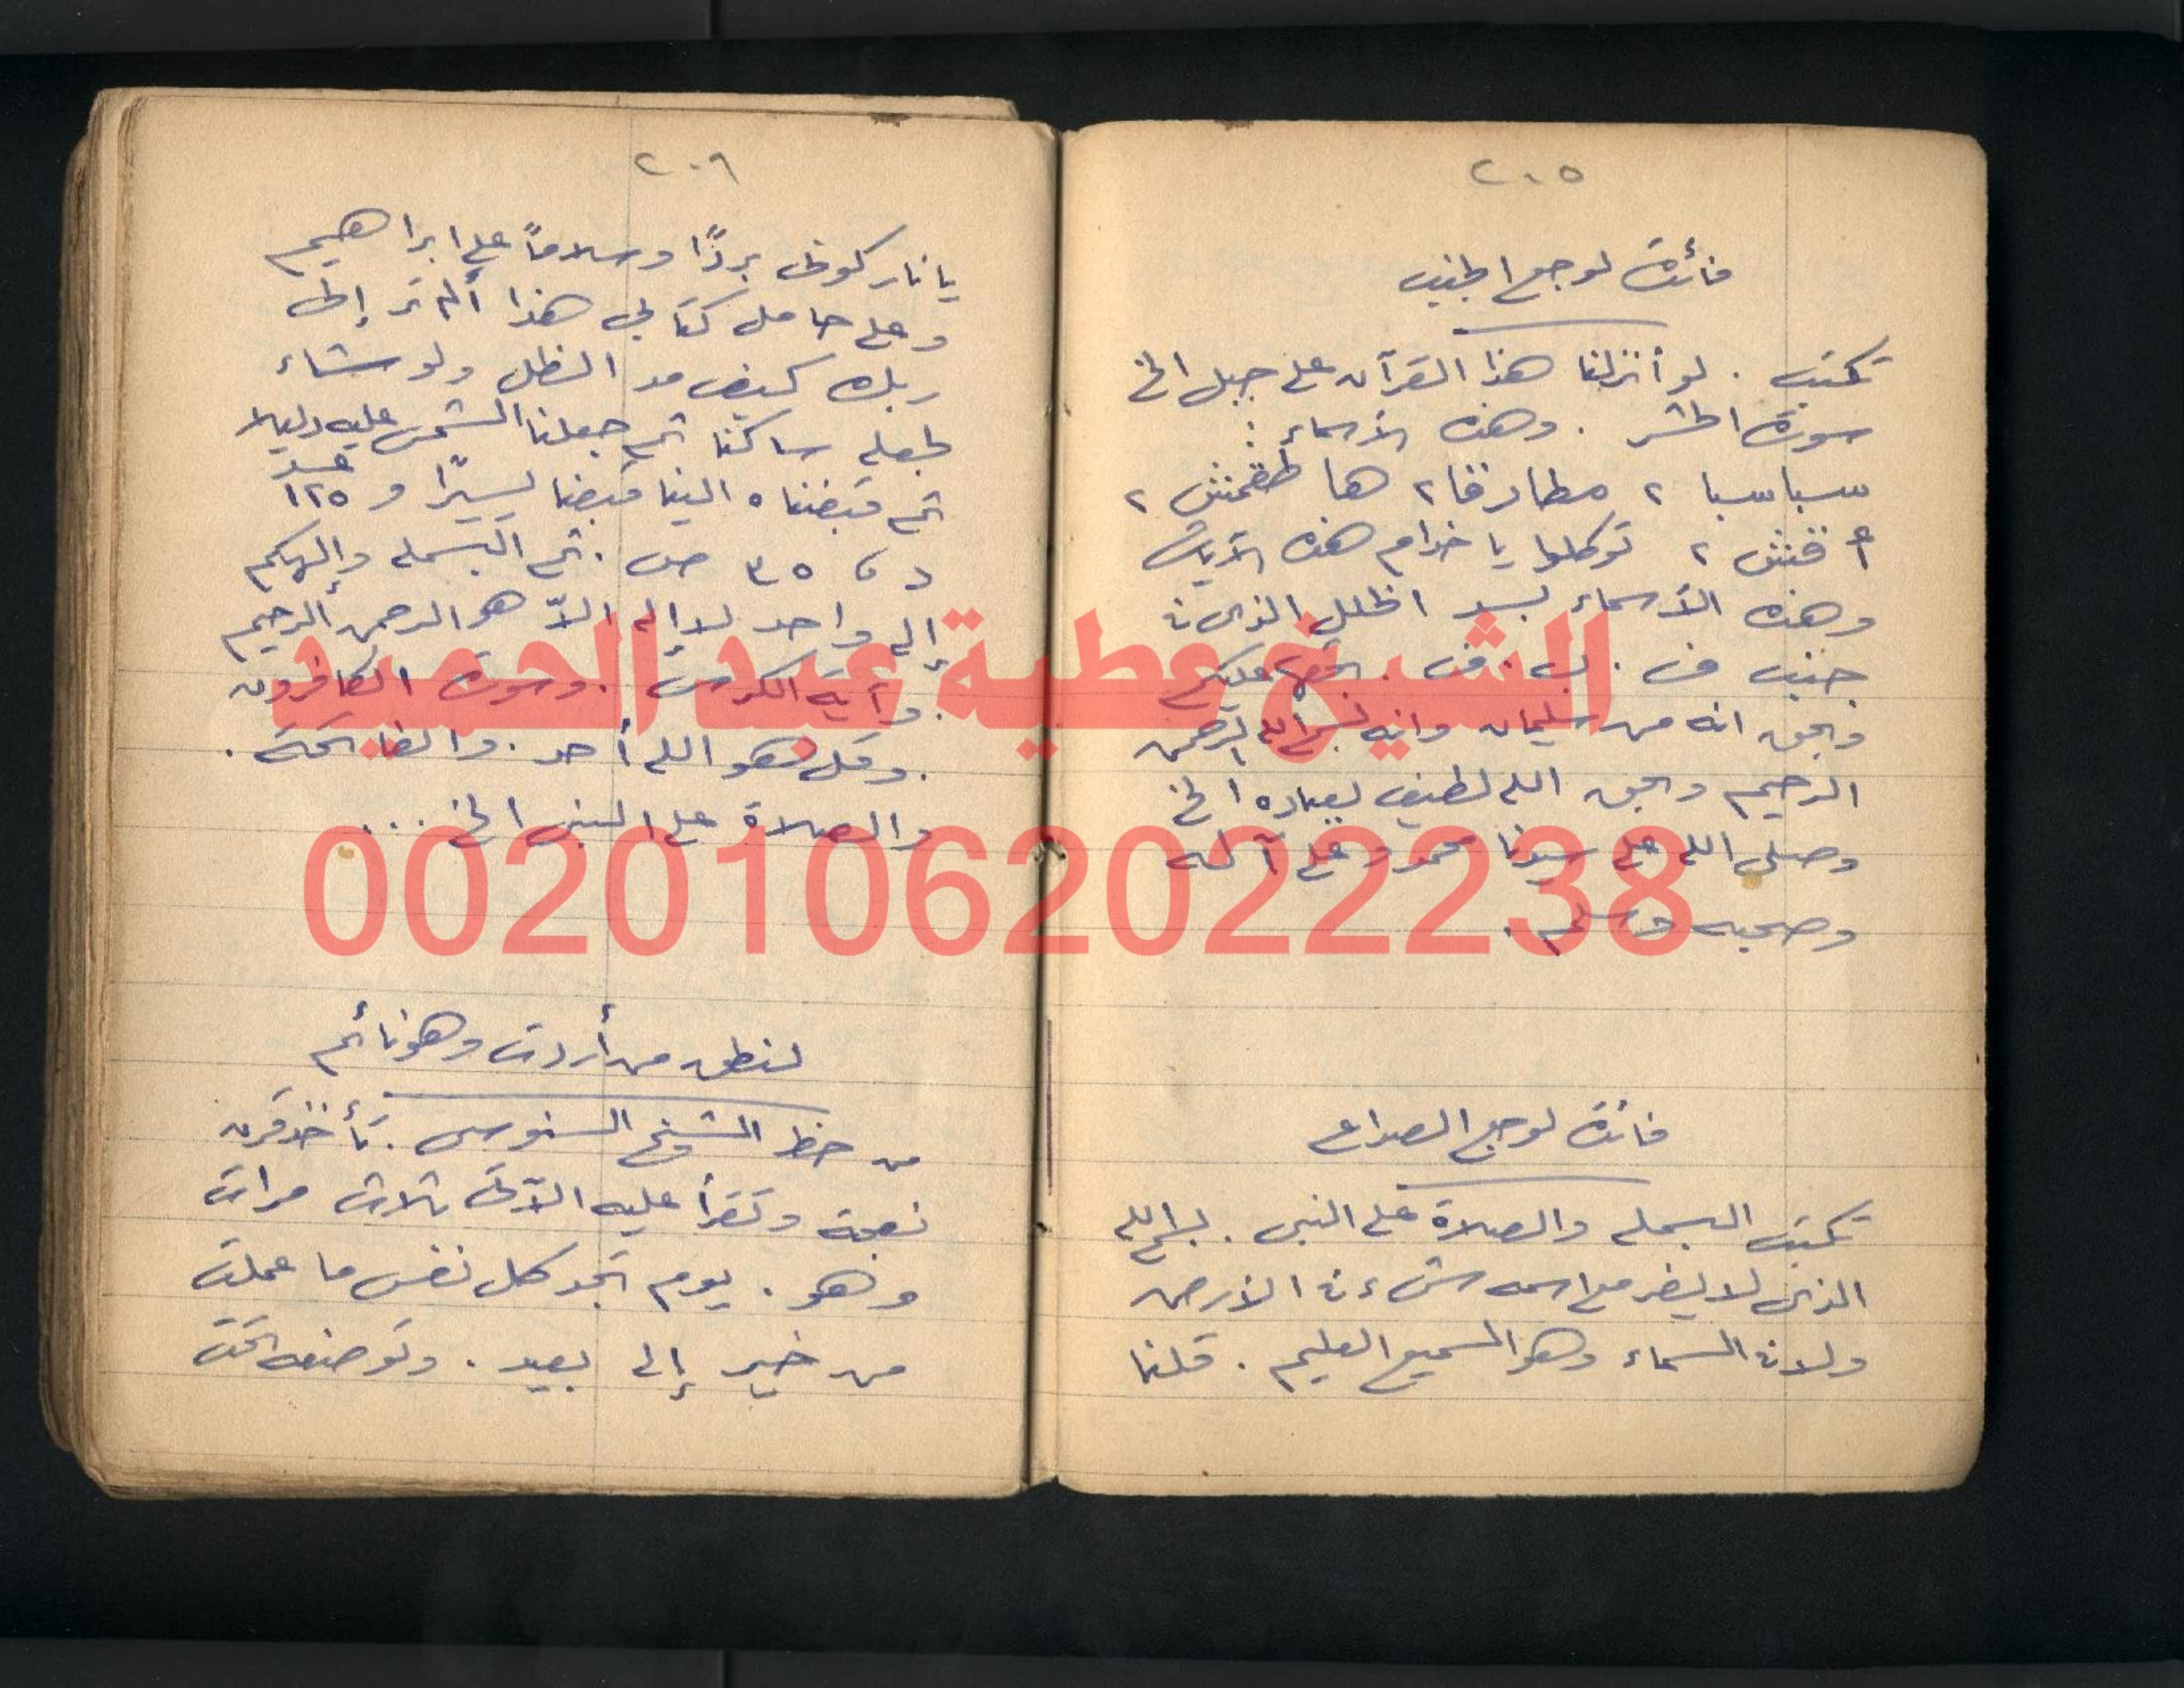 ٢٠٥
فائدة لوجع الجنب
تكتب . لو أنزلنا هذا القرآن على جبل الخ
سورة الحشر . وهذه الأسماء :
سباسبا ٢ مطارفا ٢ ها ٢
٢ توكلوا يا خدام هذه الآيات
وهذه الأسماء بسد الخلل الذى فى
جنب ف . ب . ف . بحقها عليكم
وبحق انه من سليمان وانه بسم الله الرحمن
الرحيم وبحق الله لطيف بعباده الخ
وصلى الله على سيدنا محمد وعلى آله
وصحبه وسلم .
فائدة لوجع الصداع
تكتب البسملة والصلاة على النبى . بسم الله
الذى لا يضر مع اسمه شىء فى الأرض
ولا فى السماء وهو السميع العليم . قلنا
٢٠٦
يا نار كونى بردًا وسلاماً على ابراهيم
وعلى حامل كتابى هذا ألم تر إلى
ربك كيف مد الظل ولو شاء
لجعله ساكنا ثم جعلنا الشمس عليه دليلا
ثم قبضناه الينا قبضا يسيرًا و ١٢٥
د ، ٣٥ ص . ثم البسملة وإلهكم
إله واحد لا إله إلاّ هو الرحمن الرحيم
. وآية الكرسى . وسورة الكافرون
. وقل هو الله أحد . والفاتحة .
والصلاة على النبى الخ . . .
لنطق من أردت وهو نائم
من خط الشيخ السنوسى . تأخذ قرن
نعجة وتقرأ عليه الآتى ثلاث مرات
وهو . يوم تجد كل نفس ما عملت
من خير إلى بعيد . وتوضعه تحت
الشيخ عطية عبد الحميد
00201062022238